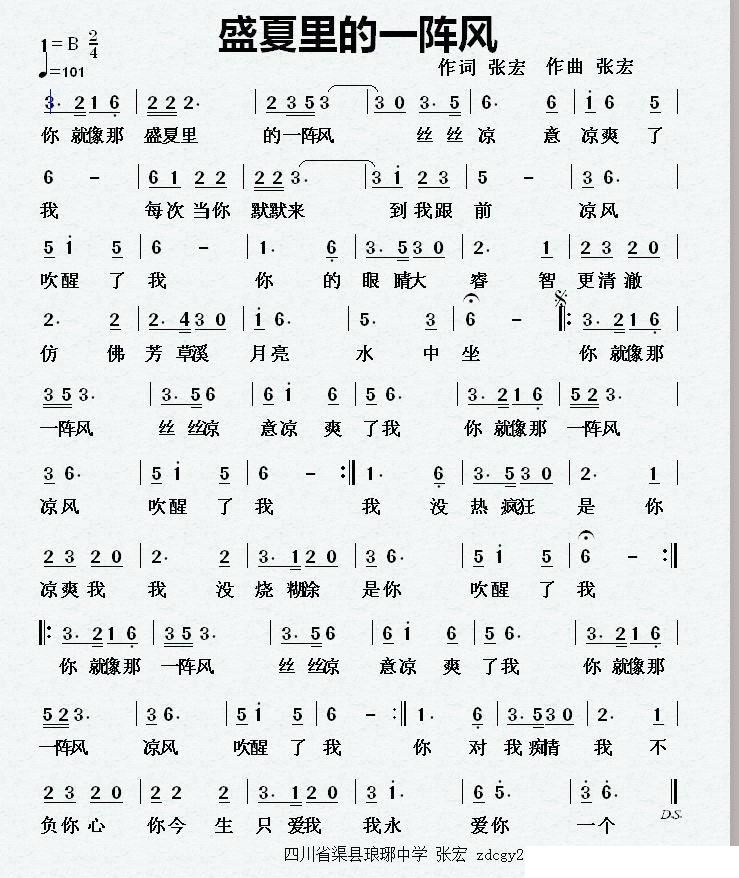 盛夏里的一阵风
1=B 2/4
♩=101
作词 张宏 作曲 张宏
3. 21 6 | 222 2. | 2 353 | 3 0 3. 5 | 6. 6 | i 6 5 |
你 就像那 盛夏里 的一阵风 丝 丝 凉 意 凉爽 了
6 － | 61 22 | 223. | 3 i 23 | 5 － | 3 6. |
我 每次 当你 默默来 到 我跟 前 凉风
5 i 5 | 6 － | 1. 6 | 3. 530 | 2. 1 | 23 20 |
吹醒 了 我 你 的 眼 睛大 睿 智 更清 澈
2. 2 | 2. 430 | i 6. | 5. 3 | 6 － ‖: 3. 21 6 |
仿 佛 芳 草溪 月亮 水 中 坐 你 就像那
353. | 3. 56 | 6 i 6 | 5 6. | 3. 21 6 | 523. |
一阵风 丝 丝凉 意凉 爽 了我 你 就像那 一阵风
3 6. | 5 i 5 | 6 － :‖ 1. 6 | 3. 530 | 2. 1 |
凉风 吹醒 了 我 我 没 热 疯狂 是 你
23 20 | 2. 2 | 3. 120 | 3 6. | 5 i 5 | 6 － :‖
凉爽 我 我 没 烧 糊涂 是你 吹醒 了 我
‖: 3. 21 6 | 353. | 3. 56 | 6 i 6 | 5 6. | 3. 21 6 |
你 就像那 一阵风 丝 丝凉 意凉 爽 了我 你 就像那
523. | 3 6. | 5 i 5 | 6 － :‖ 1. 6 | 3. 530 | 2. 1 |
一阵风 凉风 吹醒 了 我 你 对 我 痴情 我 不
23 20 | 22 2 | 3. 120 | 3 i. | 6 5. | 3 6. ‖
D.S.
负你 心 你今 生 只 爱我 我永 爱你 一个
四川省渠县琅琊中学 张宏 zdcgy2